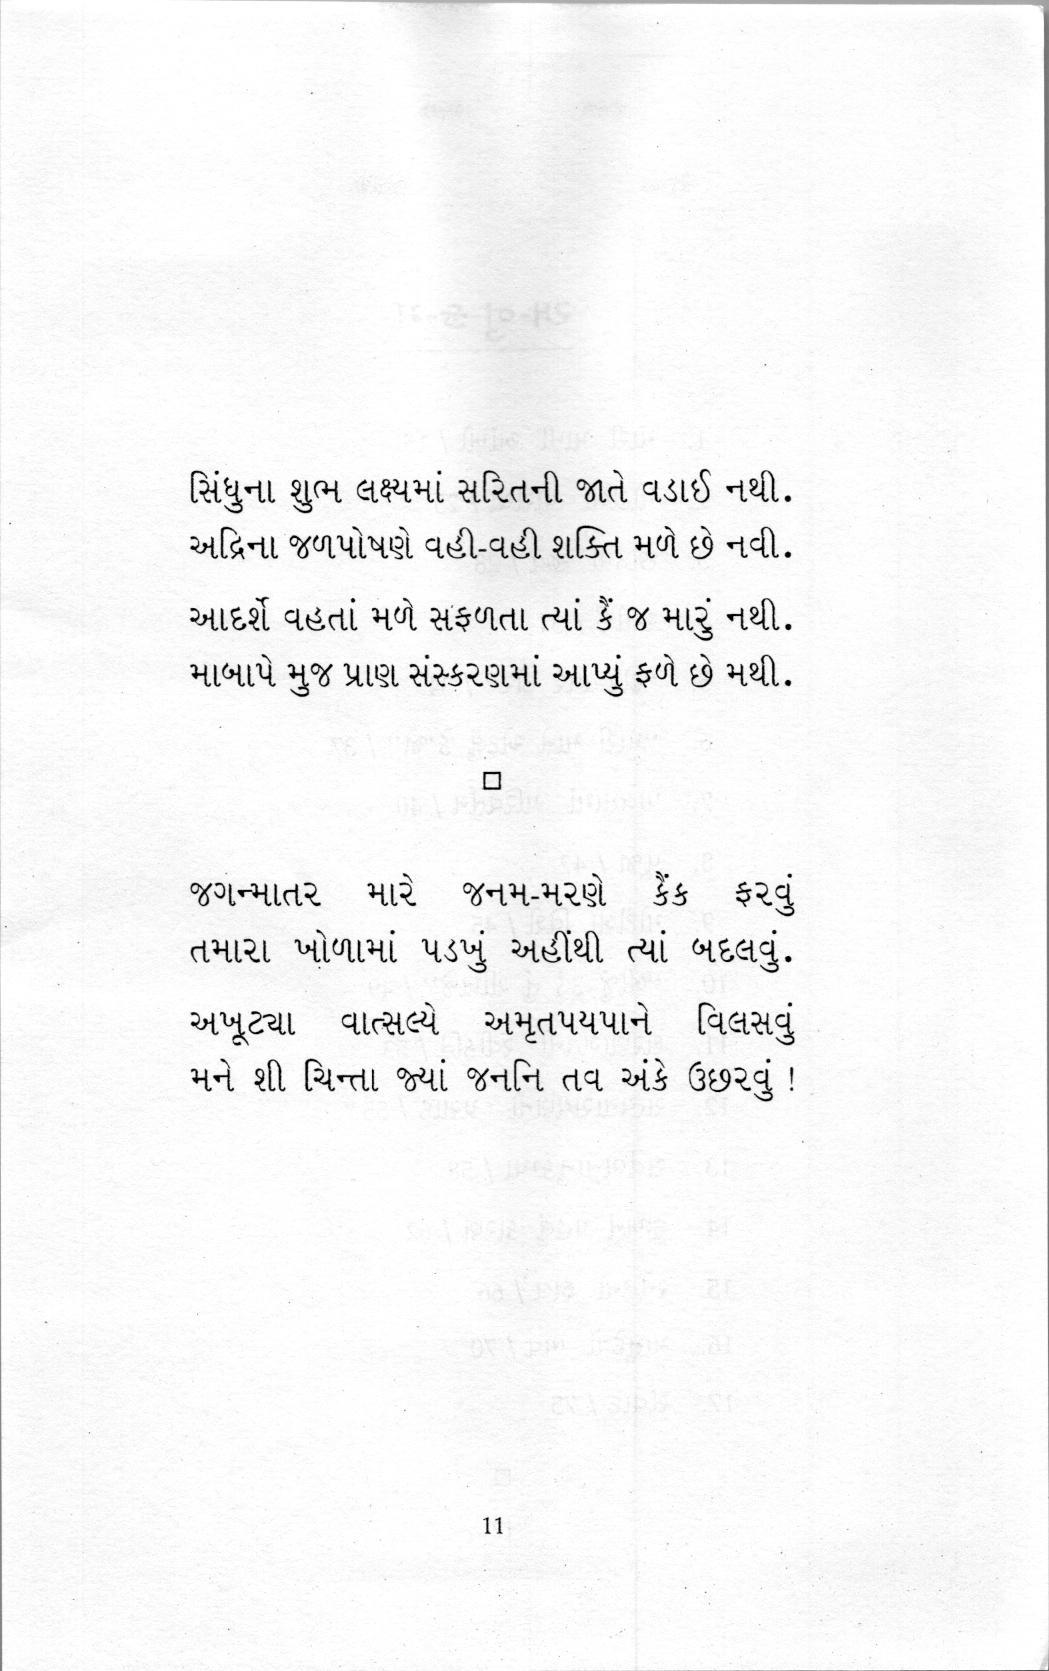 સિંધુના શુભ લક્ષ્યમાં સરિતની જાતે વડાઈ નથી.
અદ્રિના જળપોષણે વહી-વહી શક્તિ મળે છે નવી.
આદર્શે વહતાં મળે સફળતા ત્યાં કૈં જ મારું નથી.
માબાપે મુજ પ્રાણ સંસ્કરણમાં આપ્યું ફળે છે મથી.
જગન્માતર મારે જનમ-મરણે કૈંક ફરવું
તમારા ખોળામાં પડખું અહીંથી ત્યાં બદલવું.
અખૂટ્યા વાત્સલ્યે અમૃતપયપાને વિલસવું
મને શી ચિન્તા જ્યાં જનનિ તવ અંકે ઉછરવું !
11